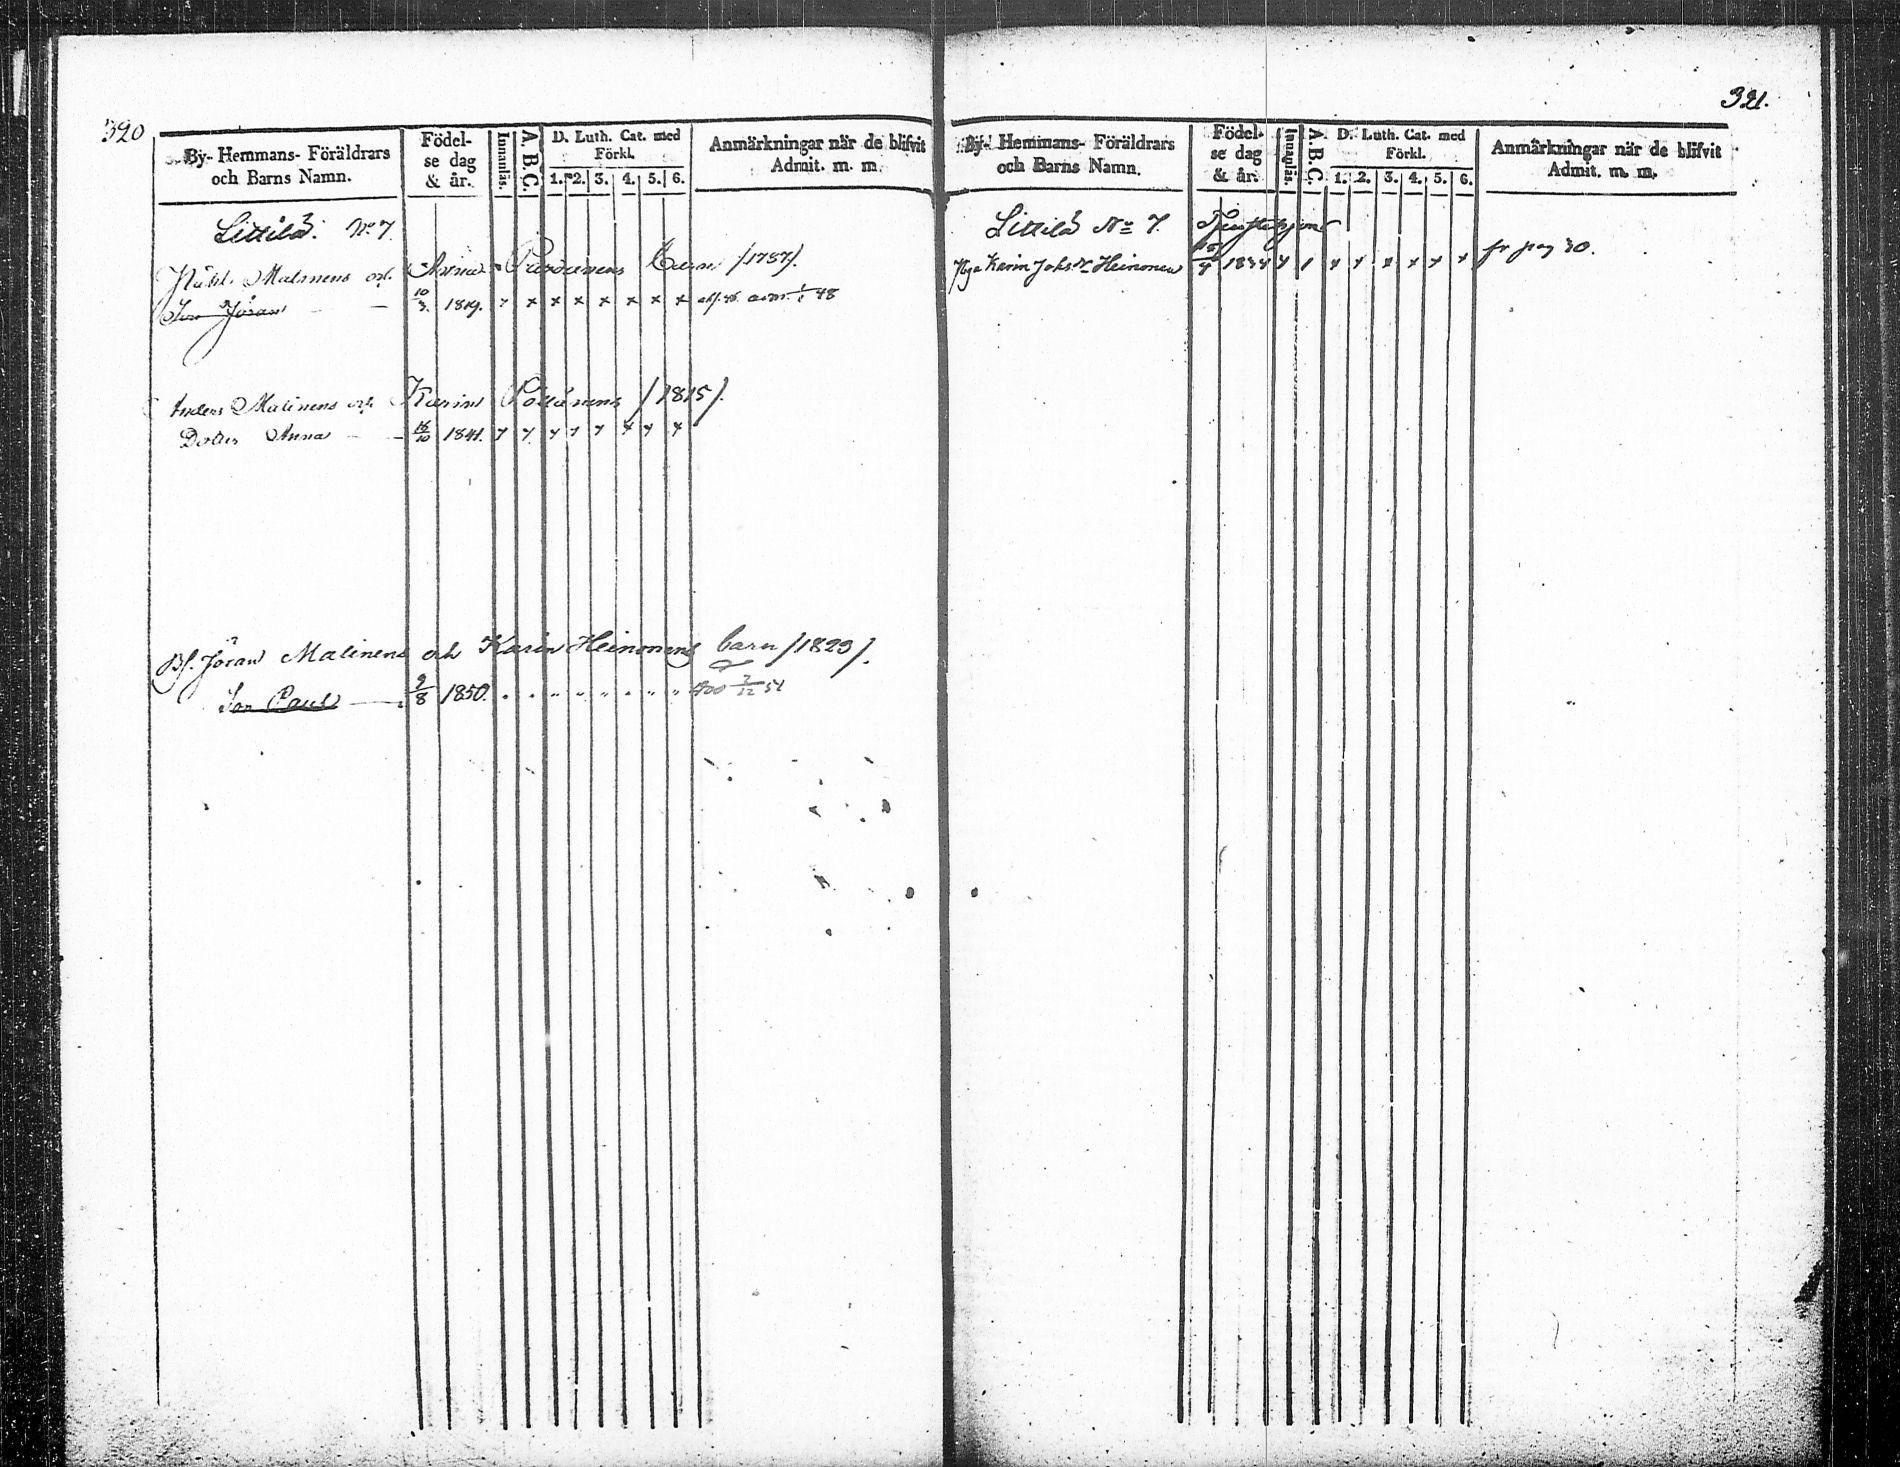 320
By- Hemmans- Föräldrars och Barns Namn.
Födel-se dag & år.
Innanläs.
A. B. C.
D. Luth. Cat. med Förkl.
1. 2. 3. 4. 5. 6.
Anmärkningar när de blifvit Admit. m. m.
Littilä. No 7.
Malinens och Anna Barn /1787/.
Son Jöran 10/3 1819. x x x x x x x x adm. 48
Anders Malinens och Karin /1815/.
Dotter Anna 18/10 1841.
Bf. Jöran Malinens och Karin Heinonens barn /1823/.
Son Paul 9/8 1850. död 2/12 54
321.
By- Hemmans- Föräldrars och Barns Namn.
Födel-se dag & år.
Innanläs.
A. B. C.
D. Luth. Cat. med Förkl.
1. 2. 3. 4. 5. 6.
Anmärkningar när de blifvit Admit. m. m.
Littilä No 7.
Karin Johsdr Heinonen 1834 fr pag 30.